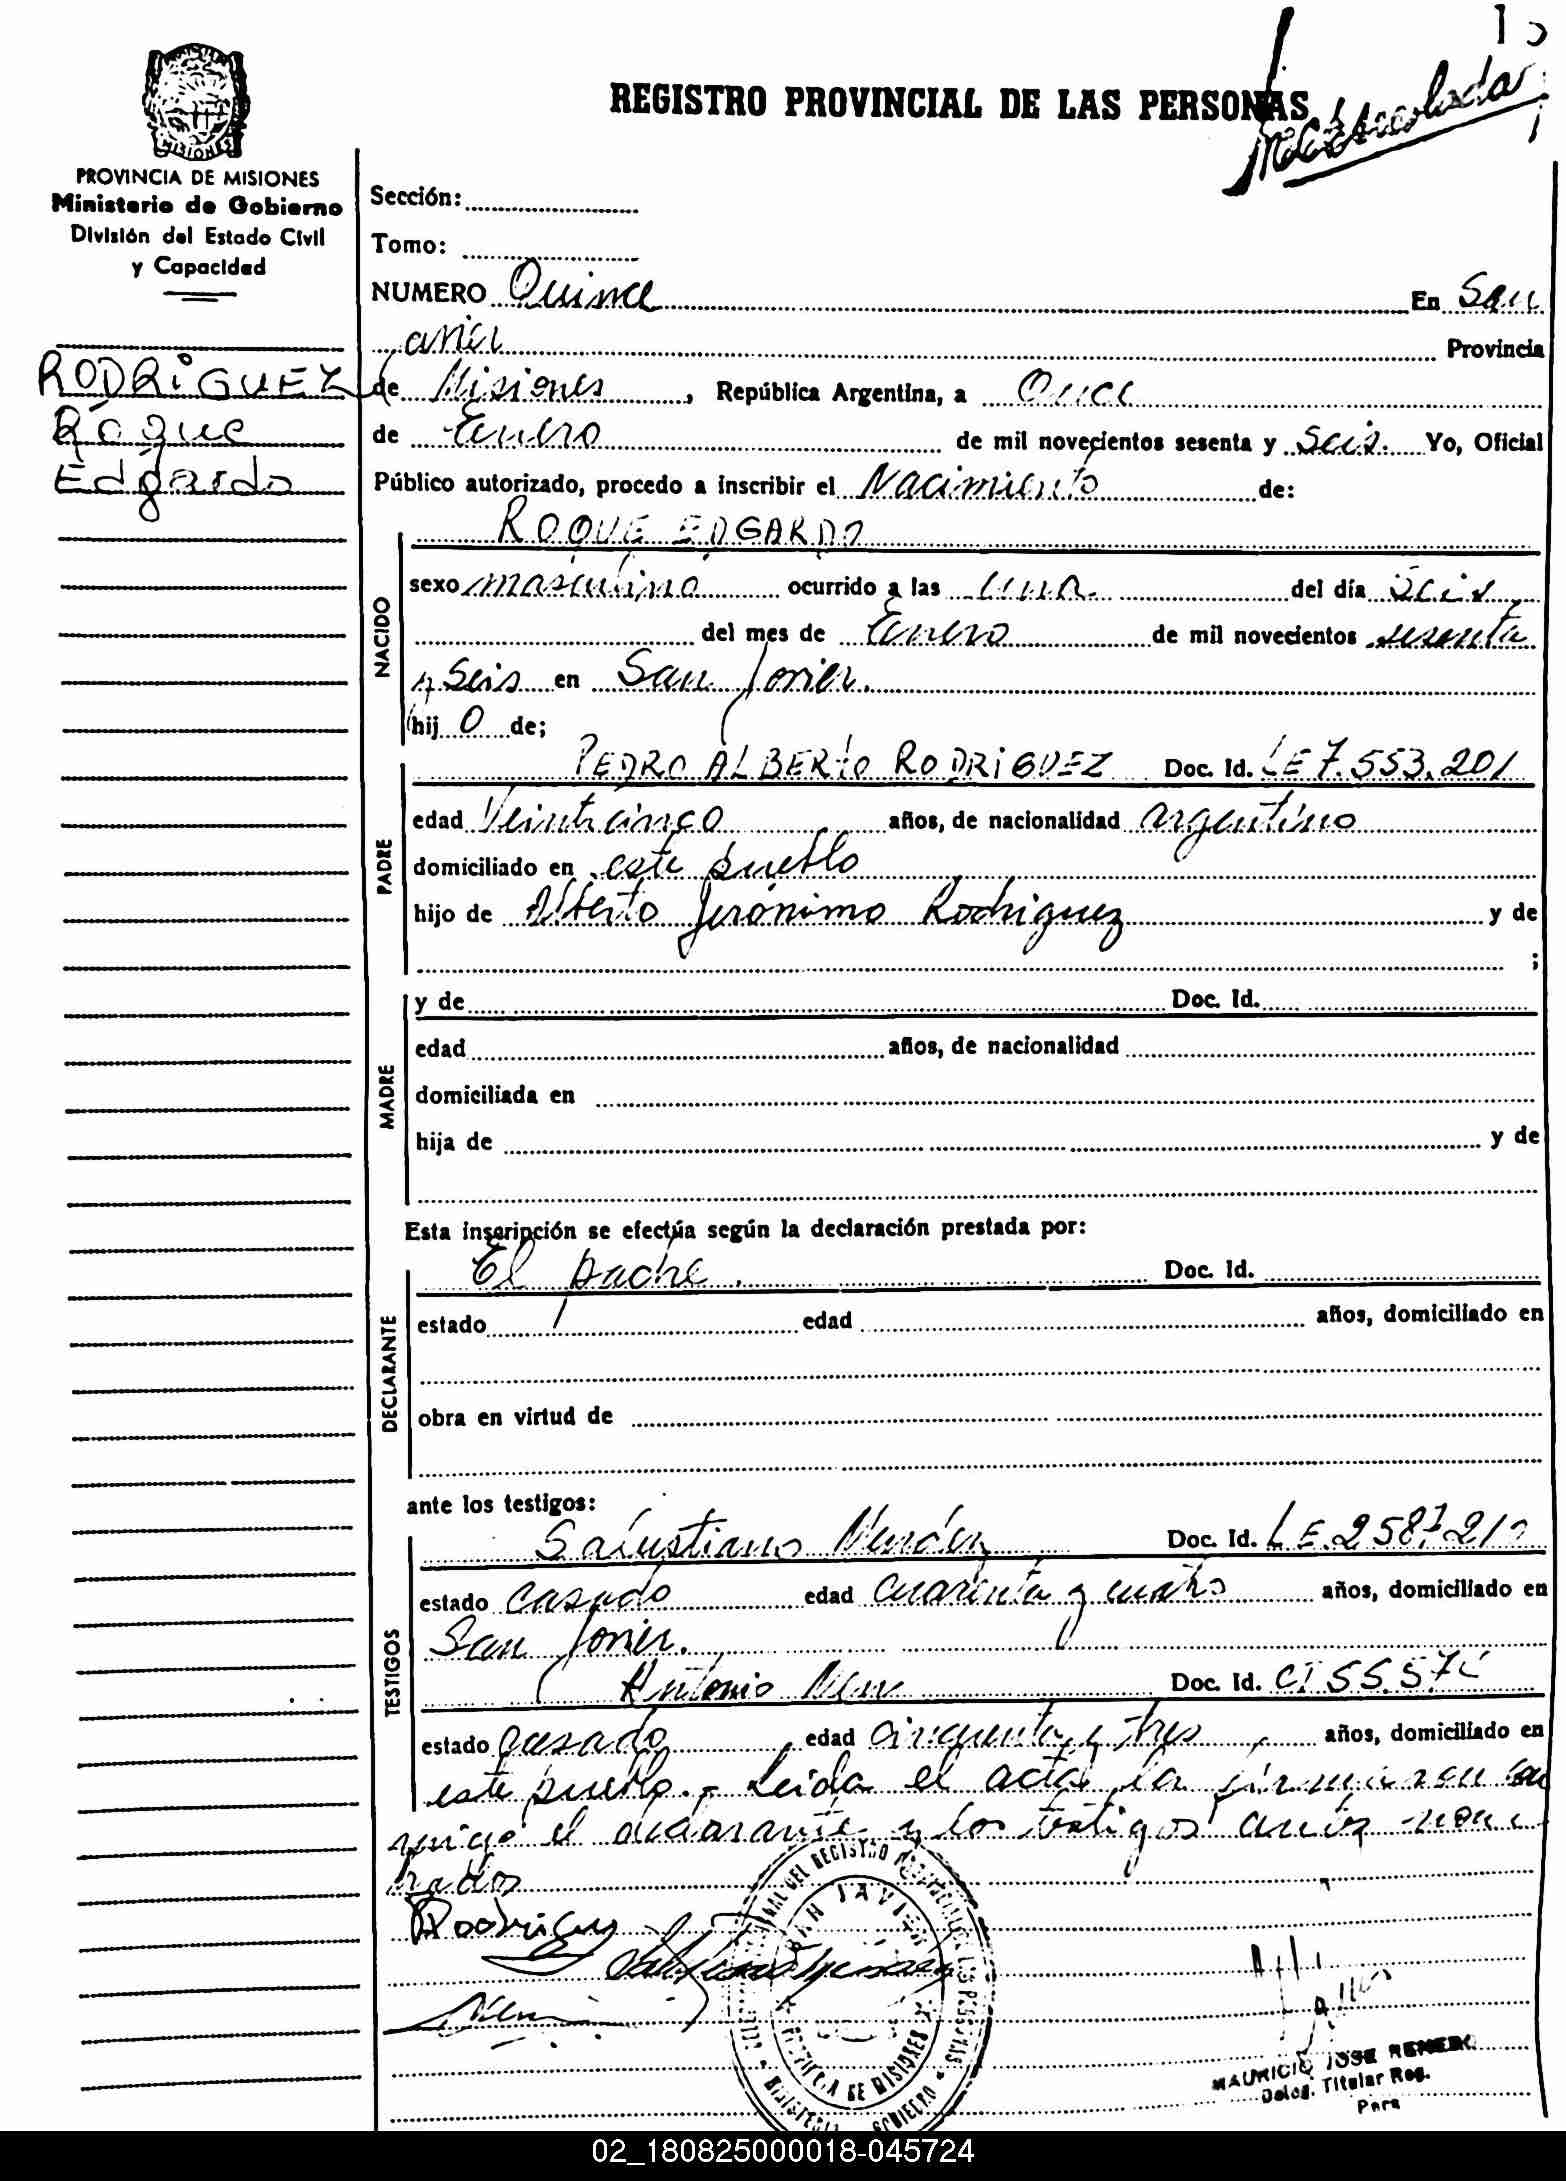 REGISTRO PROVINCIAL DE LAS PERSONAS
Matriculada
MISIONES
PROVINCIA DE MISIONES
Ministerio de Gobierno
División del Estado Civil
y Capacidad
RODRIGUEZ
Roque
Edgardo
Sección:
Tomo:
NUMERO Quince En San
Javier Provincia
de Misiones, República Argentina, a Once
de Enero de mil novecientos sesenta y Seis. Yo, Oficial
Público autorizado, procedo a inscribir el Nacimiento de:
ROQUE EDGARDO
NACIDO
sexo masculino ocurrido a las una del día Seis
del mes de Enero de mil novecientos sesenta
y Seis en San Javier.
hijo de;
PADRE
PEDRO ALBERTO RODRIGUEZ Doc. Id. LE 7.553.201
edad Veinticinco años, de nacionalidad argentino
domiciliado en este pueblo
hijo de Alberto Jerónimo Rodriguez y de
;
MADRE
y de Doc. Id.
edad años, de nacionalidad
domiciliada en
hija de y de
Esta inscripción se efectúa según la declaración prestada por:
DECLARANTE
El padre. Doc. Id.
estado edad años, domiciliado en
obra en virtud de
ante los testigos:
TESTIGOS
Salustiano Doc. Id. L.E.
estado casado edad cuarenta y cuatro años, domiciliado en
San Javier.
Antonio Doc. Id. CI 55.
estado casado edad cincuenta y tres años, domiciliado en
este pueblo.- Leida el acta la firmaron con
migo el declarante y los testigos antes nom
brados
Rodriguez
SAN JAVIER
MAURICIO JOSE
Deleg. Titular Reg.
Pers
02_180825000018-045724